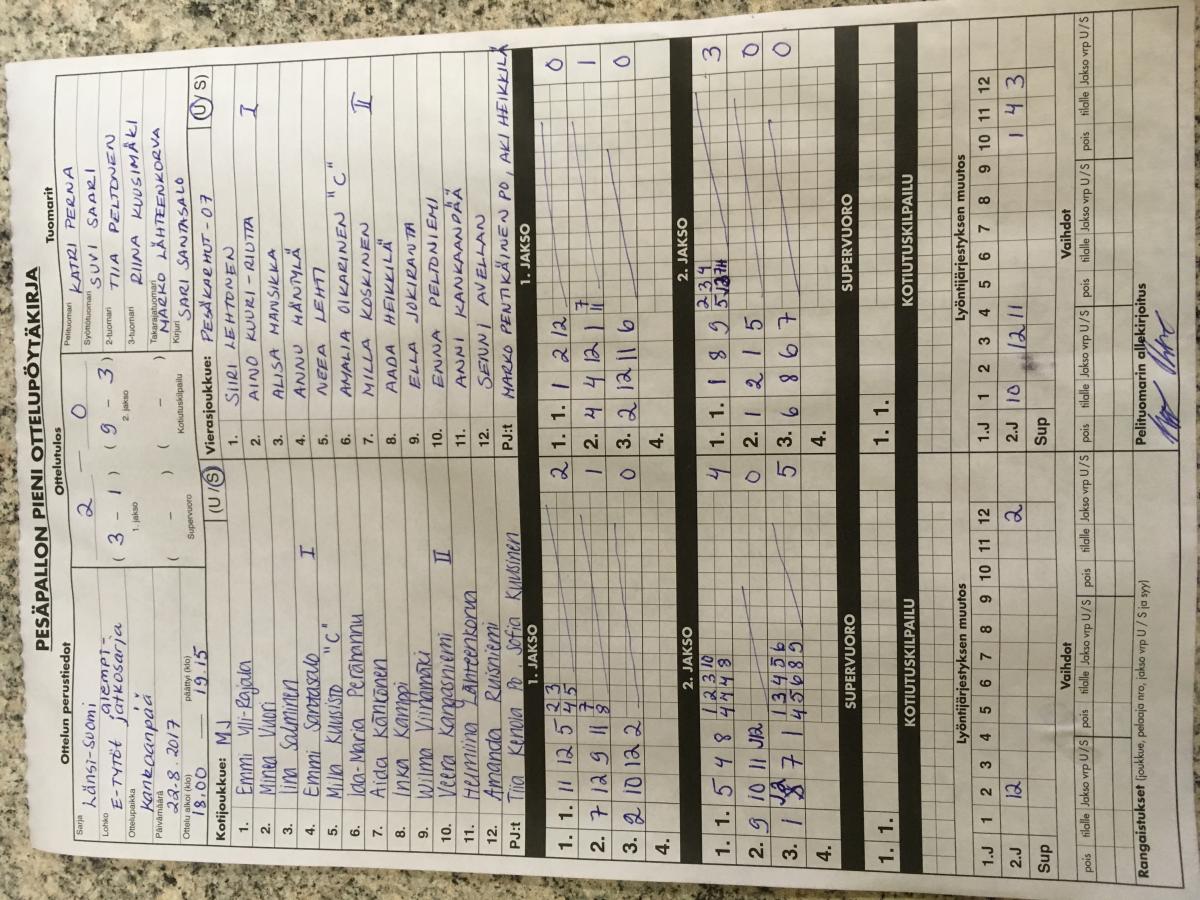 PESÄPALLON PIENI OTTELUPÖYTÄKIRJA
Ottelun perustiedot
Ottelutulos
Tuomarit
Sarja
Länsi-Suomi
Lohko
E-tytöt alempi-
jatkosarja
Ottelupaikka
Kankaanpää
Päivämäärä
22.8.2017
Ottelu alkoi (klo)
18.00
päättyi (klo)
19.15
2 — 0
( 3 – 1 ) ( 9 – 3 )
1. jakso
2. jakso
( – ) ( – )
Supervuoro
Kotiutuskilpailu
Pelituomari KATRI PERNA
Syöttötuomari SUVI SAARI
2-tuomari TIIA PELTONEN
3-tuomari RIINA KUUSIMÄKI
Takarajatuomari MARKO LÄHTEENKORVA
Kirjuri SARI SANTASALO
Kotijoukkue: MJ (U / S)
1. Emmi Yli-Rajala
2. Minea Vuori
3. Iina Salminen
4. Emmi Santasalo I
5. Milla Kuusisto "C"
6. Ida-Maria Perähannu
7. Aida Käntönen
8. Inka Kamppi
9. Wilma Viinamäki
10. Veera Kangasniemi II
11. Hemiina Lähteenkorva
12. Amanda Ruisniemi
PJ:t Tiia Kenola PO, Sofia Kuusinen
Vierasjoukkue: PESÄKARHUT-07 (U / S)
1. SIIRI LEHTONEN
2. AINO KUURI-RIUTTA I
3. ALISA MANSIKKA
4. ANNU MÄNTYLÄ
5. NEEA LEHTI
6. AMALIA OIKARINEN "C"
7. MILLA KOSKINEN II
8. AADA HEIKKILÄ
9. ELLA JOKIRANTA
10. ENNA PELTONIEMI
11. ANNI KANKAANPÄÄ
12. SENNI AVELLAN
PJ:t MARKO PENTIKÄINEN PO, AKI HEIKKILÄ
1. JAKSO
1. 1. 11 12 5 2 3 4 5 2
2. 7 12 9 11 7 8 1
3. 2 10 12 2 0
4.
1. JAKSO
1. 1. 1 2 12 0
2. 4 4 12 1 7 11 1
3. 2 12 11 6 0
4.
2. JAKSO
1. 1. 5 4 8 1 2 3 10 4 4 4 8 4
2. 9 10 11 12 0
3. 1 7 1 1 3 4 5 6 4 5 6 8 9 5
4.
2. JAKSO
1. 1. 1 8 9 2 3 4 3
2. 1 2 1 5 0
3. 6 8 6 7 0
4.
SUPERVUORO
1. 1.
SUPERVUORO
1. 1.
KOTIUTUSKILPAILU
KOTIUTUSKILPAILU
Lyöntijärjestyksen muutos
1 2 3 4 5 6 7 8 9 10 11 12
1.J
2.J 12 2
Sup
Lyöntijärjestyksen muutos
1 2 3 4 5 6 7 8 9 10 11 12
1.J
2.J 10 12 11 1 4 3
Sup
Vaihdot
pois tilalle Jakso vrp U / S pois tilalle Jakso vrp U / S pois tilalle Jakso vrp U / S
Vaihdot
pois tilalle Jakso vrp U / S pois tilalle Jakso vrp U / S pois tilalle Jakso vrp U / S
Rangaistukset (joukkue, pelaaja nro, jakso vrp, U / S ja syy)
Pelituomarin allekirjoitus